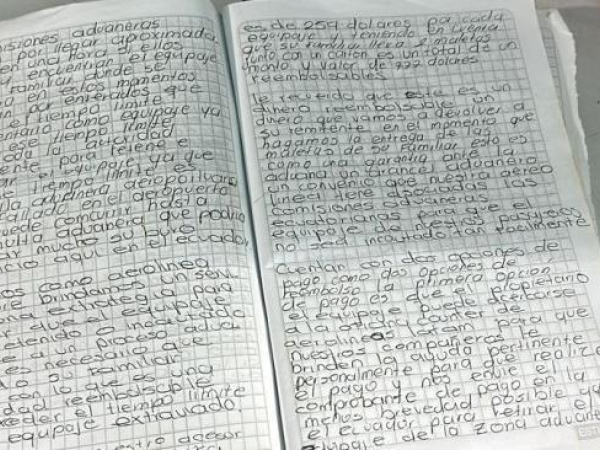 isiones aduaneras
por llegar aproximada
en una hora si ellos
en encuentran el equipaje
familiar donde se
ra en estos momentos
ar enterados que
e tiempo limite
entario como equipaje ya
ese tiempo limite
oda la autoridad
ente para retiene e
ar el equipaje ya que
el tiempo limite es
la aduanera aeroportuaria
ailada en el aeropuerto
uede concurrir hasta
multa aduanera que podria
ar mucho su
icio aqui en el ecuador
os como aerolinea
e brindamos un servi
ra extrategia para
ar que el equipaje
etenido o incautado
e a un proceso adua
es necesario que
do su familiar
con lo que es una
dad reembolsable
xceder el tiempo limite
equipaje extraviado.
asesor
es de 259 dolares por cada
equipaje y teniendo en cuenta
que su familiar lleva 2 maletas
junto con un carton es un total de un
monto a valor de 777 dolares
reembolsables
le recuerdo que este es un
dinero reembolsable un
dinero que vamos a devolver a
su remitente en el momento que
hagamos la entrega de las
maletas de su familiar esto es
como una garantia ante
aduana un arancel aduanero
un convenio que nuestra aereo
linea tiene asociadas las
comisiones aduaneras
ecuatorianas para que el
equipaje de nuestros pasajeros
no sea incautado tan facilmente
Cuentan con dos opciones de
pago como dos opciones de
reembolso la primera opcion
de pago es que el propietario
el equipaje puede acercarse
a la oficina counter de
aerolineas latam para que
nuestros compañeros le
brinden la ayuda pertinente
personalmente para que realize
el pago y nos envie el
comprobante de pago en la
menos brevedad posible
el ecuador para retirar el
equipaje de la zona aduane